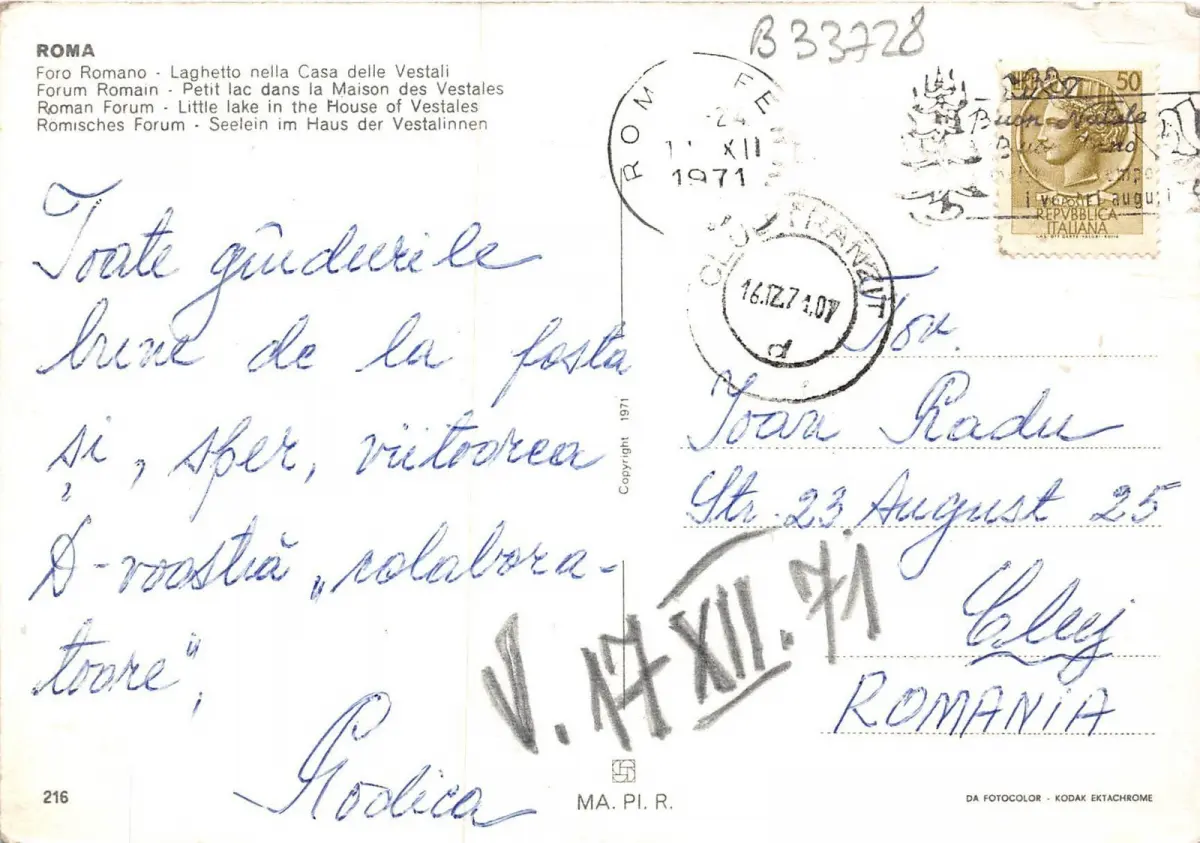 B 33728
ROMA
Foro Romano - Laghetto nella Casa delle Vestali
Forum Romain - Petit lac dans la Maison des Vestales
Roman Forum - Little lake in the House of Vestales
Römisches Forum - Seelein im Haus der Vestalinnen
ROM FE
24
XII
1971
Buon Natale
Buon Anno
i vostri auguri
50
REPVBBLICA
ITALIANA
CLUJ TRANZIT
Toate gîndurile
bune de la fosta
și, sper, viitoarea
D-voastră „colabora-
toare",
Rodica
Tov.
Ioan Radu
Str. 23 August 25
Cluj
ROMANIA
V. 17 XII. 71
Copyright 1971
216
MA. PI. R.
DA FOTOCOLOR - KODAK EKTACHROME